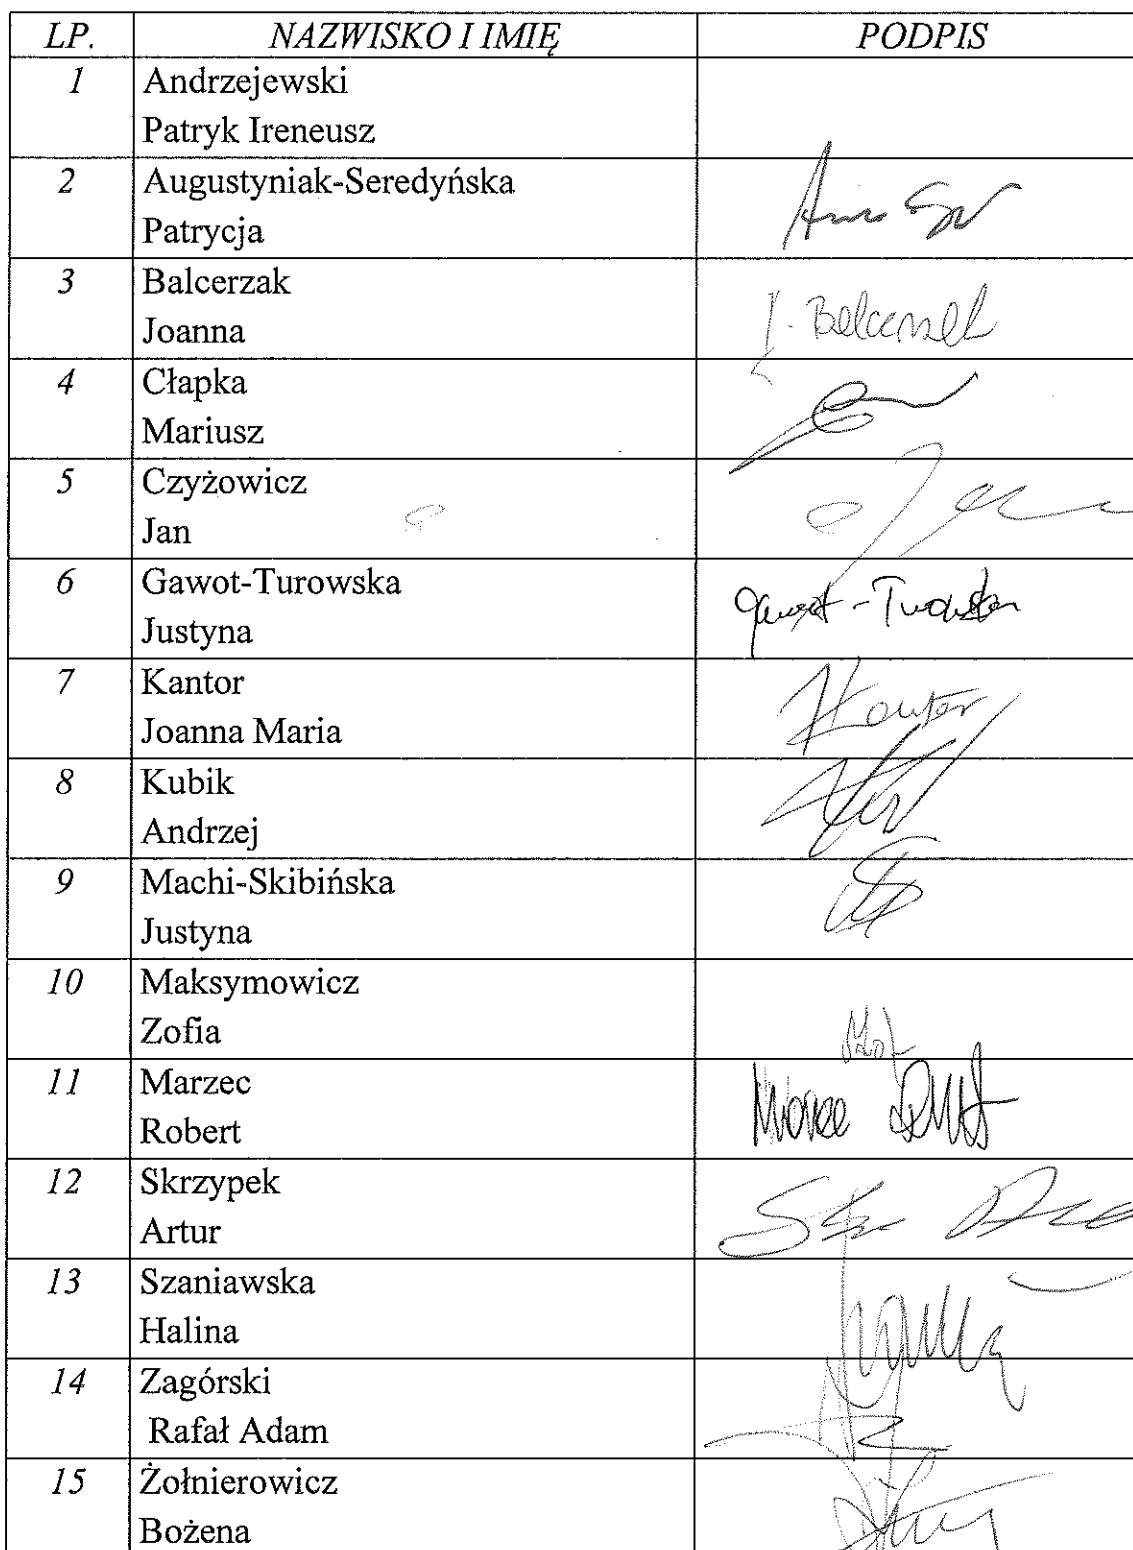 LP. NAZWISKO I IMIĘ PODPIS
1 Andrzejewski
Patryk Ireneusz
2 Augustyniak-Seredyńska
Patrycja
3 Balcerzak
Joanna
J. Balcerzak
4 Cłapka
Mariusz
5 Czyżowicz
Jan
6 Gawot-Turowska
Justyna
Gawot-Turowska
7 Kantor
Joanna Maria
JKantor
8 Kubik
Andrzej
9 Machi-Skibińska
Justyna
10 Maksymowicz
Zofia
11 Marzec
Robert
Marzec
12 Skrzypek
Artur
13 Szaniawska
Halina
14 Zagórski
Rafał Adam
15 Żołnierowicz
Bożena